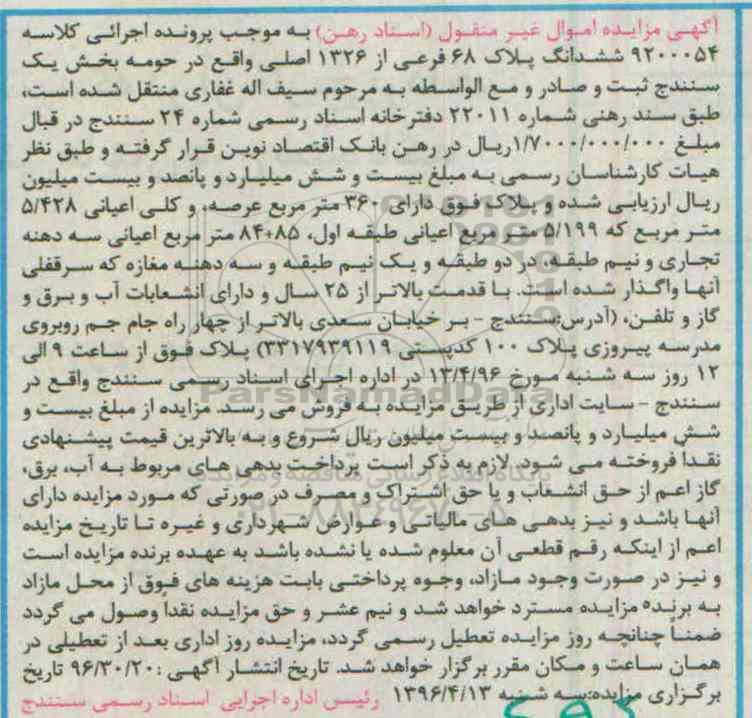 آگهی مزایده اموال غیر منقول (اسناد رهن) به موجب پرونده اجرائی کلاسه
۹۲۰۰۰۵۴ ششدانگ پلاک ۶۸ فرعی از ۱۳۲۶ اصلی واقع در حومه بخش یک
سنندج ثبت و صادر و مع الواسطه به مرحوم سیف اله غفاری منتقل شده است،
طبق سند رهنی شماره ۲۲۰۱۱ دفترخانه اسناد رسمی شماره ۲۴ سنندج در قبال
مبلغ ۱/۷۰۰۰/۰۰۰/۰۰۰ریال در رهن بانک اقتصاد نوین قرار گرفته و طبق نظر
هیات کارشناسان رسمی به مبلغ بیست و شش میلیارد و پانصد و بیست میلیون
ریال ارزیابی شده و پلاک فوق دارای ۳۶۰ متر مربع عرصه، و کلی اعیانی ۵/۴۲۸
متر مربع که ۵/۱۹۹ متر مربع اعیانی طبقه اول، ۸۴+۸۵ متر مربع اعیانی سه دهنه
تجاری و نیم طبقه، در دو طبقه و یک نیم طبقه و سه دهنه مغازه که سرقفلی
آنها واگذار شده است. با قدمت بالاتر از ۲۵ سال و دارای انشعابات آب و برق و
گاز و تلفن، (آدرس:سنندج - بر خیابان سعدی بالاتر از چهار راه جام جم روبروی
مدرسه پیروزی پلاک ۱۰۰ کدپستی ۳۳۱۷۹۳۹۱۱۹) پلاک فوق از ساعت ۹ الی
۱۲ روز سه شنبه مورخ ۱۳/۴/۹۶ در اداره اجرای اسناد رسمی سنندج واقع در
سنندج - سایت اداری از طریق مزایده به فروش می رسد. مزایده از مبلغ بیست و
شش میلیارد و پانصد و بیست میلیون ریال شروع و به بالاترین قیمت پیشنهادی
نقداً فروخته می شود. لازم به ذکر است پرداخت بدهی های مربوط به آب، برق،
گاز اعم از حق انشعاب و یا حق اشتراک و مصرف در صورتی که مورد مزایده دارای
آنها باشد و نیز بدهی های مالیاتی و عوارض شهرداری و غیره تا تاریخ مزایده
اعم از اینکه رقم قطعی آن معلوم شده یا نشده باشد به عهده برنده مزایده است
و نیز در صورت وجود مازاد، وجوه پرداختی بابت هزینه های فوق از محل مازاد
به برنده مزایده مسترد خواهد شد و نیم عشر و حق مزایده نقداً وصول می گردد
ضمناً چنانچه روز مزایده تعطیل رسمی گردد، مزایده روز اداری بعد از تعطیلی در
همان ساعت و مکان مقرر برگزار خواهد شد. تاریخ انتشار آگهی :۹۶/۳۰/۲۰ تاریخ
برگزاری مزایده:سه شنبه ۱۳۹۶/۴/۱۳ رئیس اداره اجرایی اسناد رسمی سنندج
ParsNamadData
پایگاه اطلاع رسانی مناقصه و مزایده
۰۲۱-۸۸۳۴۹۶۷۰-۵